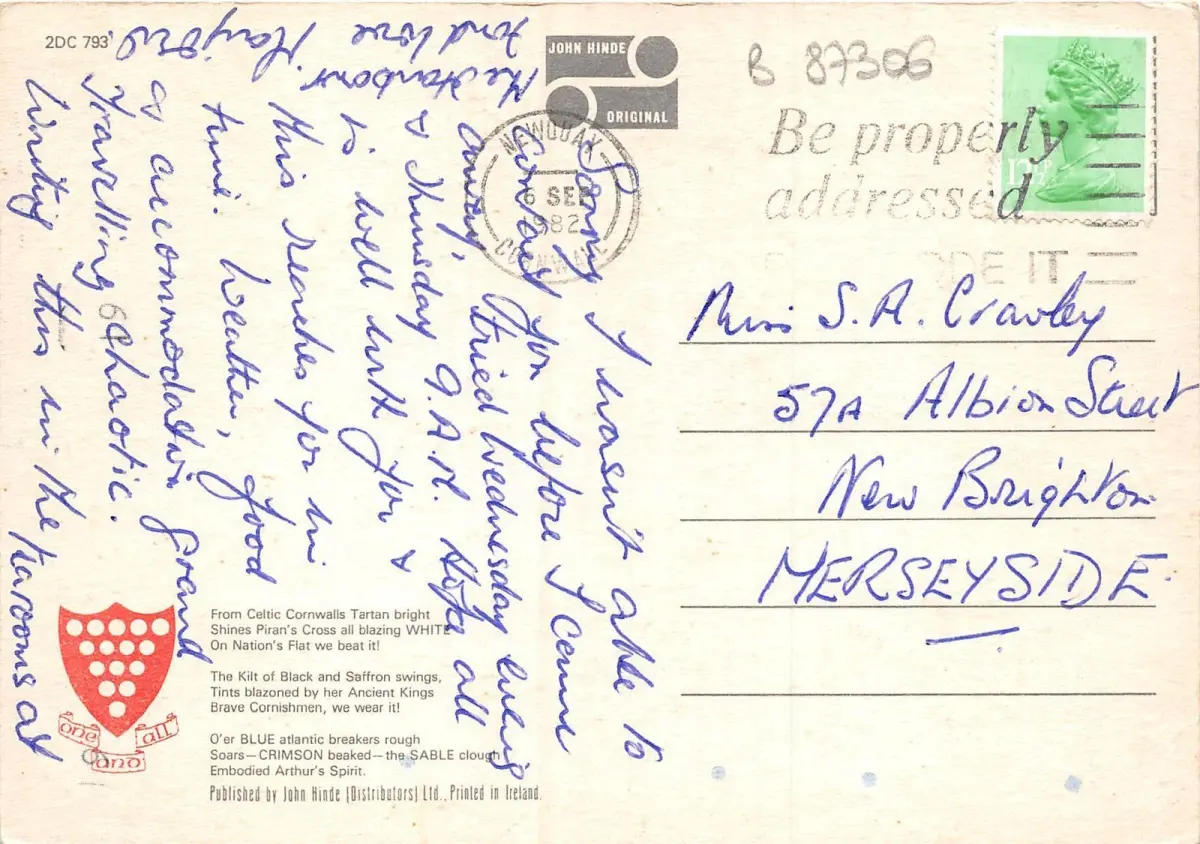 2DC 793
JOHN HINDE
ORIGINAL
B 87306
Be properly
addressed
ODE IT
NEWQUAY
6 SEP
1982
CORNWALL
12½P
Sorry I wasn't able to
contact you before I came
away, tried Wednesday evening
& Thursday 9.A.M. Hope all
is well with you &
this reaches you in
time. Weather, good
as accommodation grand
Travelling chaotic.
Writing this in the
at
the Harbour.
fond love
Miss S.A. Crawley
57A Albion Street
New Brighton
MERSEYSIDE
From Celtic Cornwalls Tartan bright
Shines Piran's Cross all blazing WHITE
On Nation's Flat we beat it!
The Kilt of Black and Saffron swings,
Tints blazoned by her Ancient Kings
Brave Cornishmen, we wear it!
O'er BLUE atlantic breakers rough
Soars—CRIMSON beaked—the SABLE clough
Embodied Arthur's Spirit.
one and all
Published by John Hinde (Distributors) Ltd., Printed in Ireland.